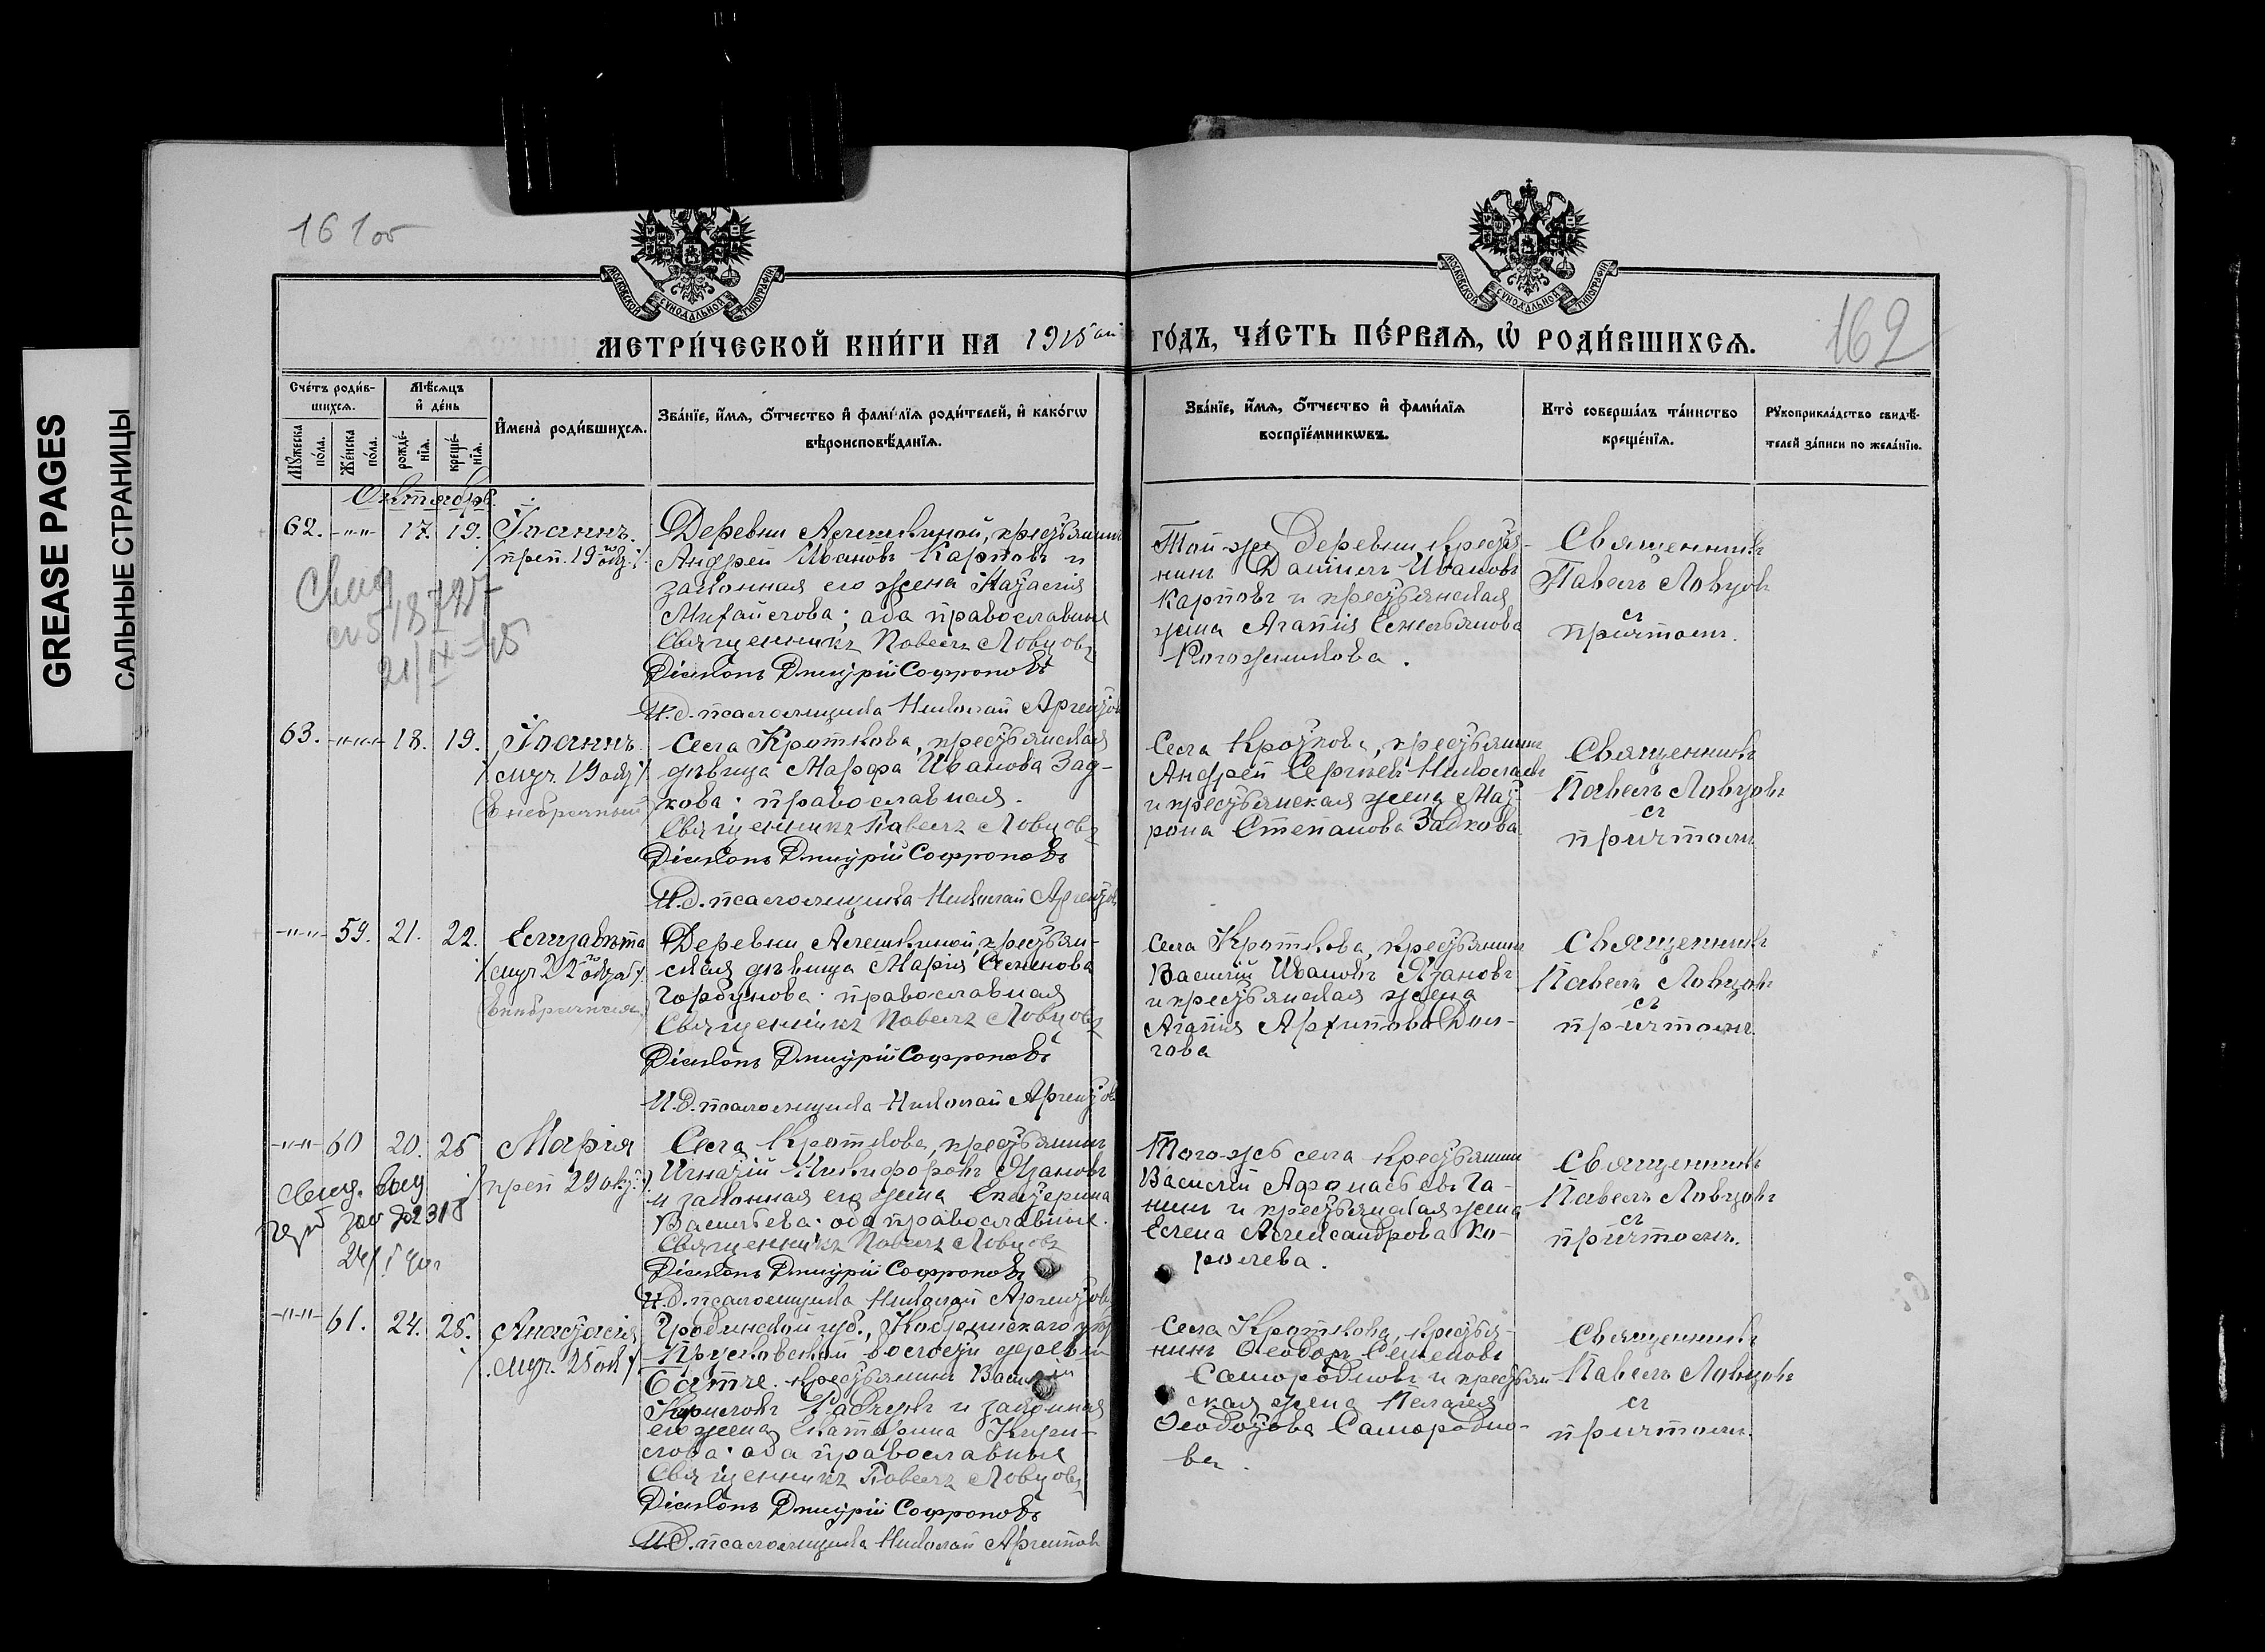 GREASE PAGES
САЛЬНЫЕ СТРАНИЦЫ
161об
162
МОСКОВСКОЙ СѴНОДАЛЬНОЙ ТИПОГРАФІИ
МОСКОВСКОЙ СѴНОДАЛЬНОЙ ТИПОГРАФІИ
МЕТРИ́ЧЕСКОЙ КНИ́ГИ НА 1915ый ГО́ДЪ, ЧА́СТЬ ПЕ́РВАѦ, Ѡ҆ РОДИ́ВШИХСѦ.
Сче́тъ роди́в-
шихсѧ.
Мꙋ́жеска по́ла.
Же́нска по́ла.
Мѣ́сѧцъ
и҆ де́нь
рожде́-
нїѧ.
креще́-
нїѧ.
И҆мена̀ роди́вшихсѧ.
Зва́нїе, и҆́мѧ, ѻ҆́тчество и҆ фами́лїѧ роди́телей, и҆ како́гѡ
вѣроисповѣ́данїѧ.
Зва́нїе, и҆́мѧ, ѻ҆́тчество и҆ фами́лїѧ
воспрїе́мникѡвъ.
Кто̀ соверша́лъ та́инство
креще́нїѧ.
Рꙋкоприкла́дство свидѣ́-
телей за́писи по жела́нїю.
Октябрь.
62. -"-"- 17. 19. Іоаннъ.
/преп. 19го окт./.
Деревни Алешкиной, крестьянинъ
Андрей Ивановъ Карповъ и
законная его жена Наталія
Михайлова; оба православные
Священникъ Павелъ Ловцовъ
Діаконъ Дмитрій Софроновъ
И.д. псаломщика Николай Аргентов
Той-же деревни крестья-
нинъ Даніилъ Ивановъ
Карповъ и крестьянская
жена Агапія Емельянова
Рогожникова.
Священникъ
Павелъ Ловцовъ
съ
причтомъ.
Свид
63. -"-"- 18. 19. Іоаннъ.
/муч. 19 окт/
(Внебрачный)
Села Кроткова, крестьянская
дѣвица Марфа Иванова Зад-
кова; православная.
Священникъ Павелъ Ловцовъ
Діаконъ Дмитрій Софроновъ
И.д. псаломщика Николай Аргентов
Села Кроткова, крестьянинъ
Андрей Сергѣевъ Николаевъ
и крестьянская жена Мат-
рона Степанова Задкова
Священникъ
Павелъ Ловцовъ
съ
причтомъ
-"-"- 59. 21. 22. Елизавета
/муч 22го октяб/.
(Внебрачная)
Деревни Алешкиной, крестьян-
ская дѣвица Марія Семенова
Горбунова; православная
Священникъ Павелъ Ловцовъ
Діаконъ Дмитрій Софроновъ
И.д. псаломщика Николай Аргентов
Села Кроткова, крестьянинъ
Василій Ивановъ Язановъ
и крестьянская жена
Агапія Архипова Дол-
гова
Священникъ
Павелъ Ловцовъ
съ
причтомъ
-"-"- 60 20. 25 Марія
/преп 29 окт./
Села Кроткова, крестьянинъ
Игнатій Никифоровъ Язановъ
и законная его жена Екатерина
Васильева; оба православные.
Священникъ Павелъ Ловцовъ
Діаконъ Дмитрій Софроновъ
И.д. псаломщика Николай Аргентовъ
Того-же села крестьянинъ
Василій Афанасьевъ Га-
нинъ и крестьянская жена
Елена Александрова Ко-
ролева.
Священникъ
Павелъ Ловцовъ
съ
причтомъ.
-"-"- 61. 24. 25. Анастасія
/муч. 25 ок/
Гродненской губ., Кобринскаго у.
волости деревни
крестьянинъ Василій
Кириловъ и законная
его жена Екатерина Кири-
лова; оба православные
Священникъ Павелъ Ловцовъ
Діаконъ Дмитрій Софроновъ
И.д. псаломщика Николай Аргентов
Села Кроткова, крестья-
нинъ Ѳеодоръ Семеновъ
Самородновъ и крестьян
ская жена Пелагея
Ѳеодотова Самородно-
ва.
Священникъ
Павелъ Ловцовъ
съ
причтомъ.